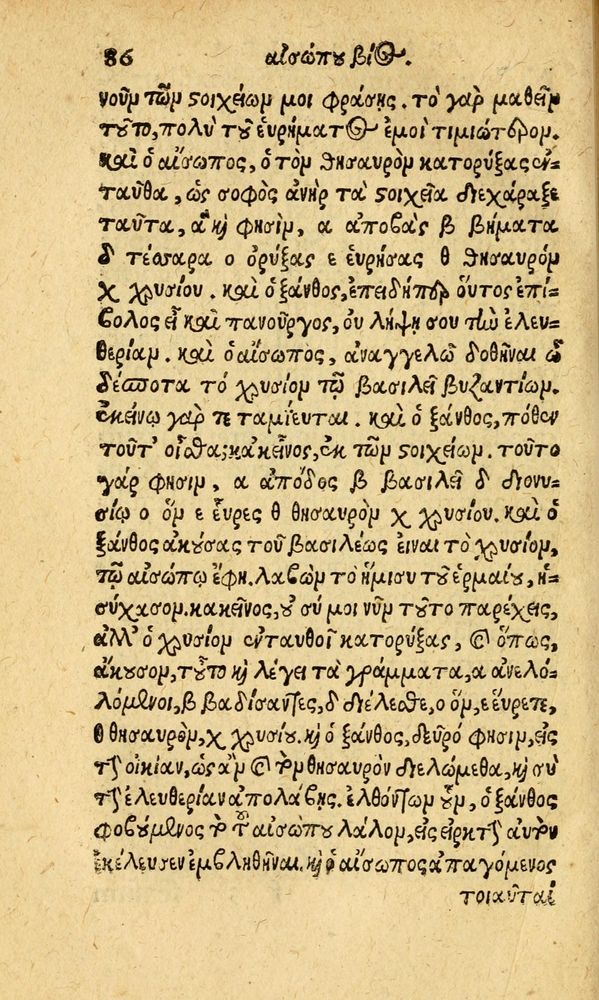 86 αἰσώπου βίος.
νοῦν τῶν στοιχείων μοι φράσῃς. τὸ γὰρ μαθεῖν
τοῦτο, πολὺ τοῦ ἑυρήματος ἐμοὶ τιμιώτερον.
καὶ ὁ αἴσωπος, ὁ τὸν θησαυρὸν κατορύξας ἐν-
ταῦθα, ὡς σοφὸς ἀνὴρ τὰ στοιχεῖα διεχάραξε
ταῦτα, ἃ καὶ φησὶν, α ἀποβὰς β βήματα
δ τέσσαρα ο ὀρύξας ε ἑυρήσας θ θησαυρόν
χ χρυσίου. καὶ ὁ ξάνθος, ἐπειδήπερ οὕτος ἐπί-
βολος εἶ καὶ πανοῦργος, οὐ λήψῃ σου τὴν ἐλευ-
θερίαν. καὶ ὁ αἴσωπος, ἀναγγελῶ δοθῆναι ὦ
δέσποτα τὸ χρυσίον τῷ βασιλεῖ βυζαντίων.
ἐκείνῳ γὰρ τε ταμίευται. καὶ ὁ ξάνθος, πόθεν
τοῦτ' οἶσθα; κἀκεῖνος, ἐκ τῶν στοιχείων. τοῦτο
γάρ φησιν, α ἀπόδος β βασιλεῖ δ διονυ-
σίῳ ο ὃν ε εὗρες θ θησαυρὸν χ χρυσίου. καὶ ὁ
ξάνθος ἀκούσας τοῦ βασιλέως εἶναι τὸ χρυσίον,
τῷ αἰσώπῳ ἔφη. λαβὼν τὸ ἥμισυ τοῦ ἑρμαίου, ἡ-
σύχασον. κἀκεῖνος, οὐ σύ μοι νῦν τοῦτο παρέχεις,
ἀλλ' ὁ χρυσίον ἐνταυθοῖ κατορύξας, καὶ ὅπως,
ἄκουσον, τοῦτο καὶ λέγει τὰ γράμματα, α ἀνελό-
λόμενοι, β βαδίσαντες, δ διέλεσθε, ο ὃν, ε εὕρετε,
θ θησαυρὸν, χ χρυσίου. καὶ ὁ ξάνθος, δεῦρό φησιν, εἰς
τὴν οἰκίαν, ὡς ἂν καὶ τὸν θησαυρὸν διελώμεθα, καὶ σὺ
τὴν ἐλευθερίαν ἀπολάβῃς. ἐλθόντων οὖν, ὁ ξάνθος
φοβούμενος τὸ τοῦ αἰσώπου λάλον, εἰς εἱρκτὴν αὐτὸν
ἐκέλευσεν ἐμβληθῆναι. καὶ ὁ αἴσωπος ἀπαγόμενος
τοιαῦται